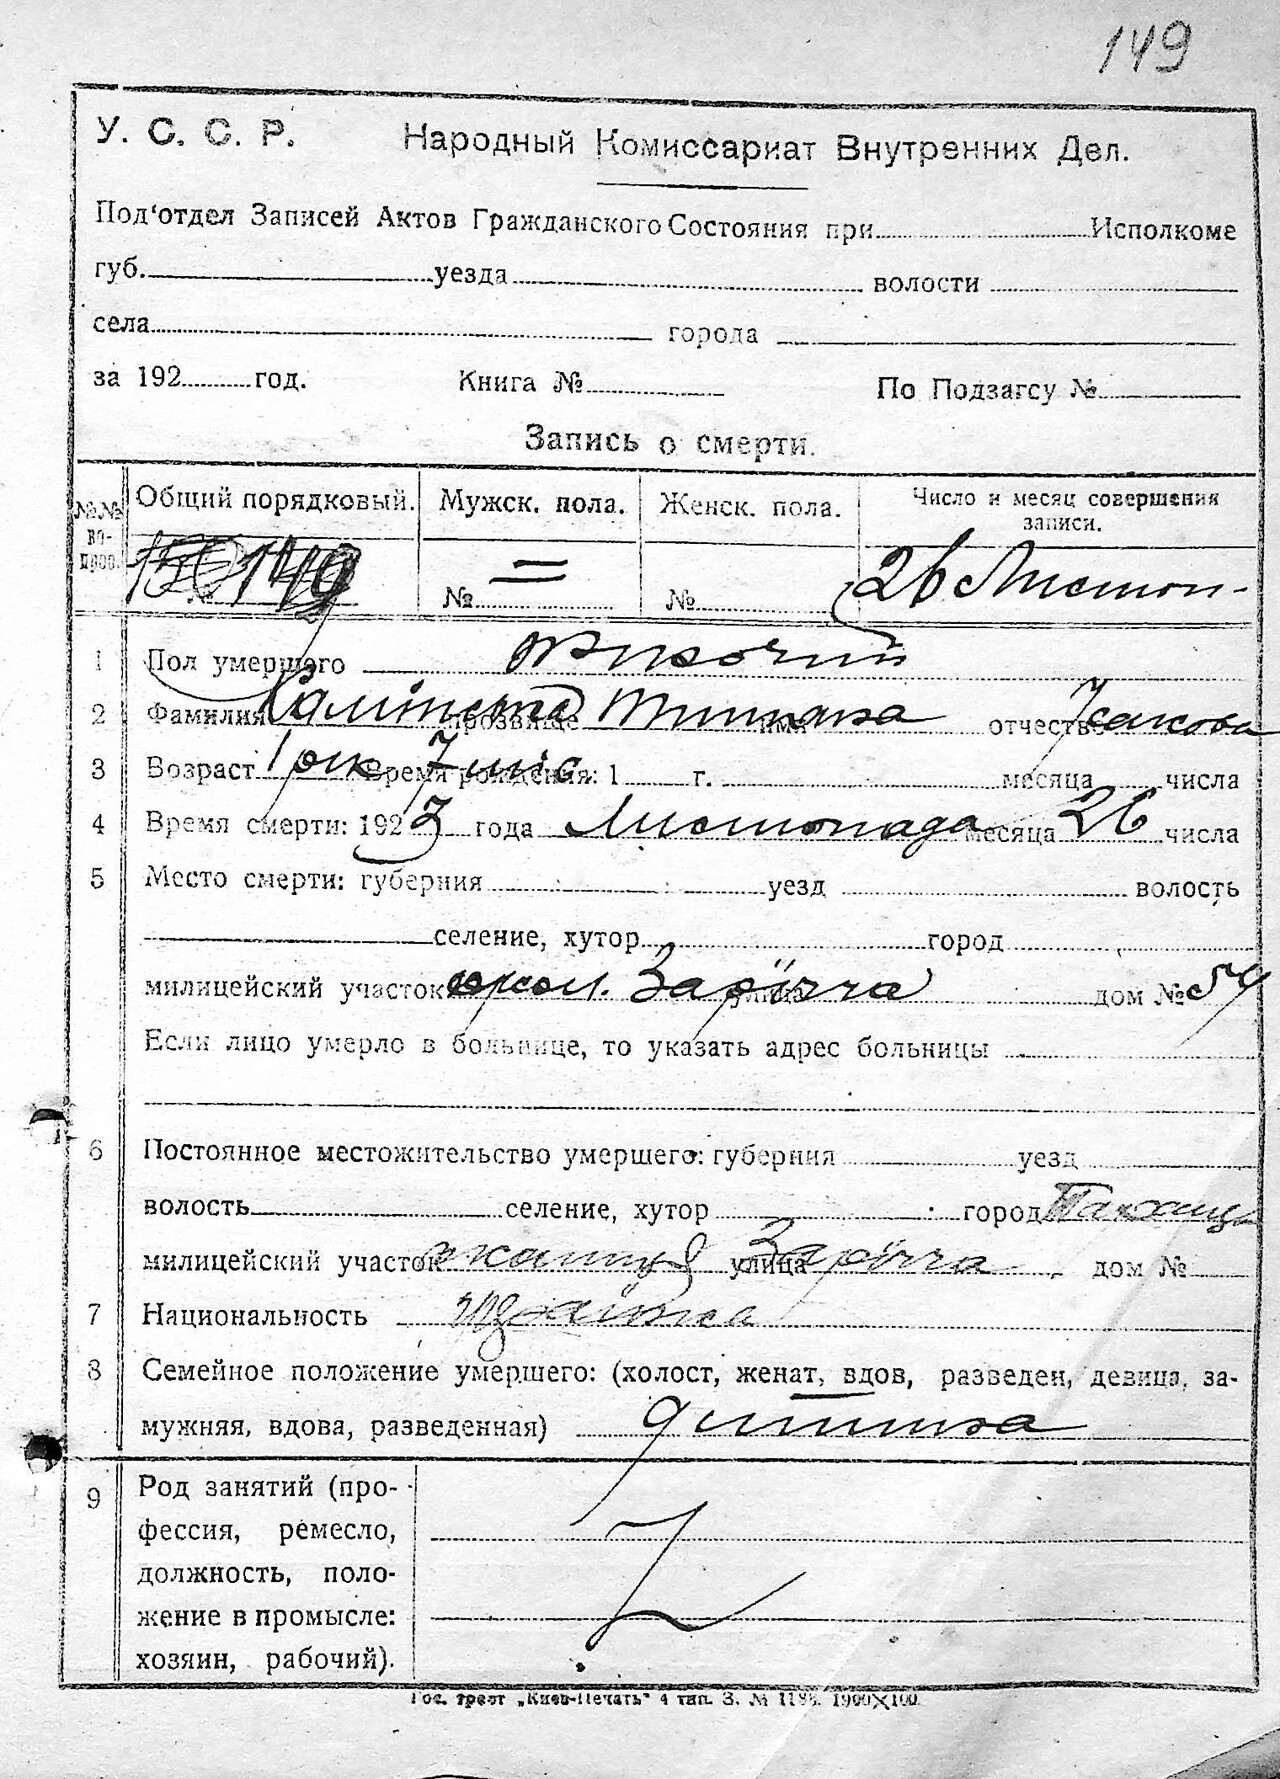 149
У. С. С. Р. Народный Комиссариат Внутренних Дел.
Под'отдел Записей Актов Гражданского Состояния при Исполкоме
губ. уезда волости
села города
за 192 год. Книга № По Подзагсу №
Запись о смерти.
№№ вопрос. Общий порядковый. Мужск. пола. Женск. пола. Число и месяц совершения записи.
№ 150 149 № = № 26 Листоп-
1 Пол умершого жіночий
2 Фамилия прозвище имя отчество Ісакова
3 Возраст 1 рік 7 міс. Время рождения: 1 г. месяца числа
4 Время смерти: 1923 года Листопада месяца 26 числа
5 Место смерти: губерния уезд волость
селение, хутор город
милицейский участок улица Зарічча дом № 54
Если лицо умерло в больнице, то указать адрес больницы
6 Постоянное местожительство умершего: губерния уезд
волость селение, хутор город
милицейский участок улица Зарічча дом №
7 Национальность
8 Семейное положение умершего: (холост, женат, вдов, разведен, девица, за-
мужняя, вдова, разведенная) дитина
9 Род занятий (про-
фессия, ремесло,
должность, поло-
жение в промысле:
хозяин, рабочий).
Гос. трест „Киев-Печать" 4 тип. З. № 1900×100.